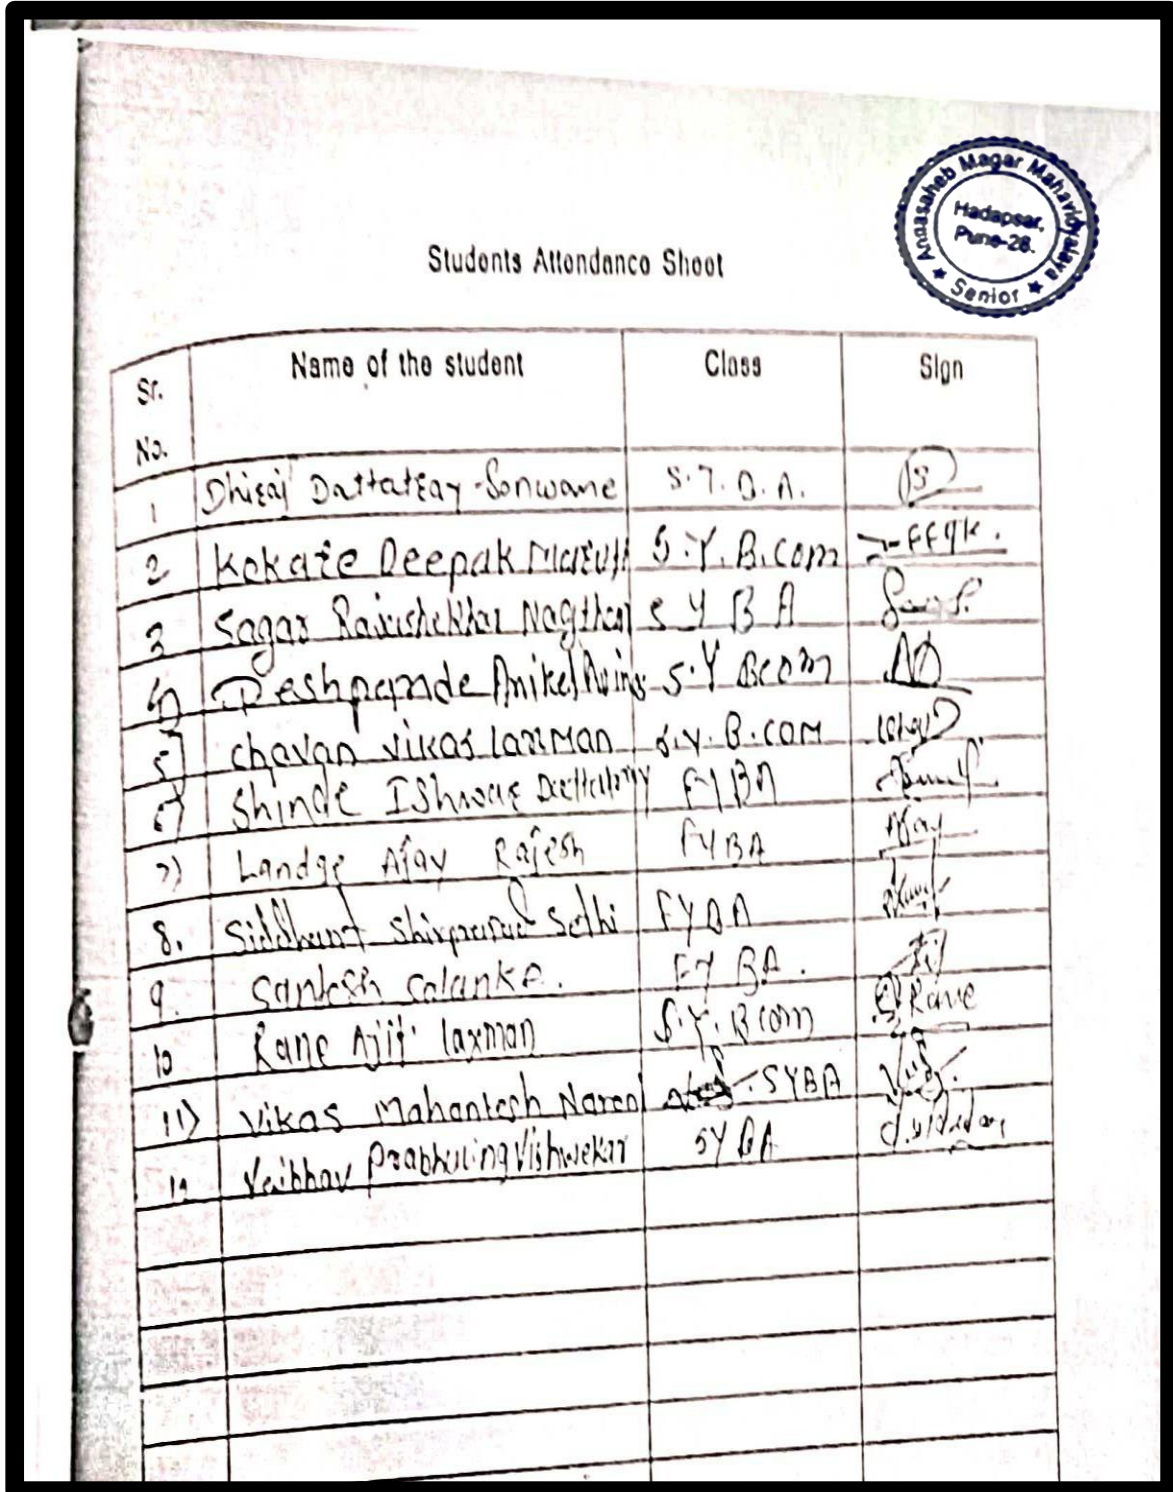 Annasaheb Magar Mahavidyalaya
Hadapsar,
Pune-28.
★ Senior ★
Students Attendance Sheet
Sr. No. Name of the student Class Sign
1 Dhiraj Dattatray Sonwane S.Y.B.A.
2 Kokate Deepak Maruti S.Y.B.com
3 Sagar Rajashekhar S Y B A
4) Deshpande Aniket S.Y Bcom
5) Chavan vikas laxman S.y.B.com
Shinde Ishwar Dattatray FYBA
7) Landge Ajay Rajesh FYBA Ajay
8. Siddhant Shivprasad Sethi FYBA
9. Santosh Salanke. FY BA.
10 Rane Ajit laxman S.Y.Bcom Rane
11) Vikas Mahantesh Naren SYBA
12 Vaibhav Prabhuling Vishwekar SYBA